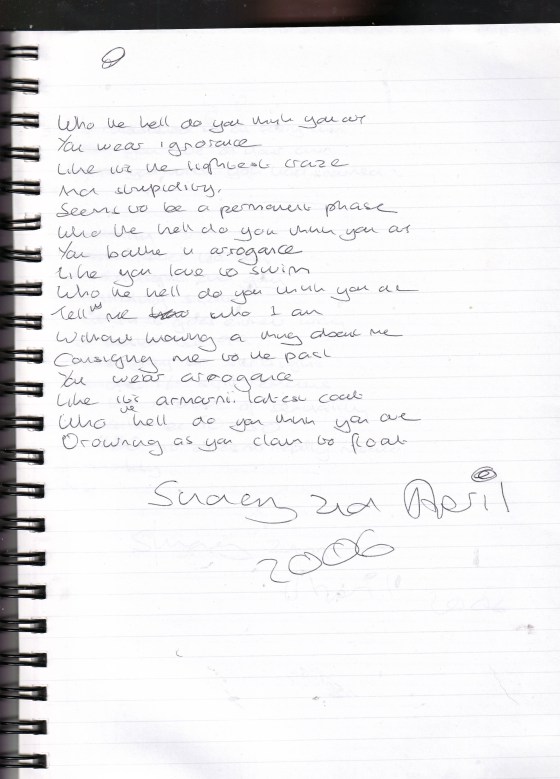 Who the hell do you think you are
You wear ignorance
Like its the lightest craze
And stupidity,
Seems to be a permanent phase
Who the hell do you think you are
You bathe in arrogance
Like you love to swim
Who the hell do you think you are
Tell me who I am
Without knowing a thing about me
Consigning me to the past
You wear arrogance
Like its armarni. latest coat
Who the hell do you think you are
Drowning as you claim to float
Sunday 2nd April
2006